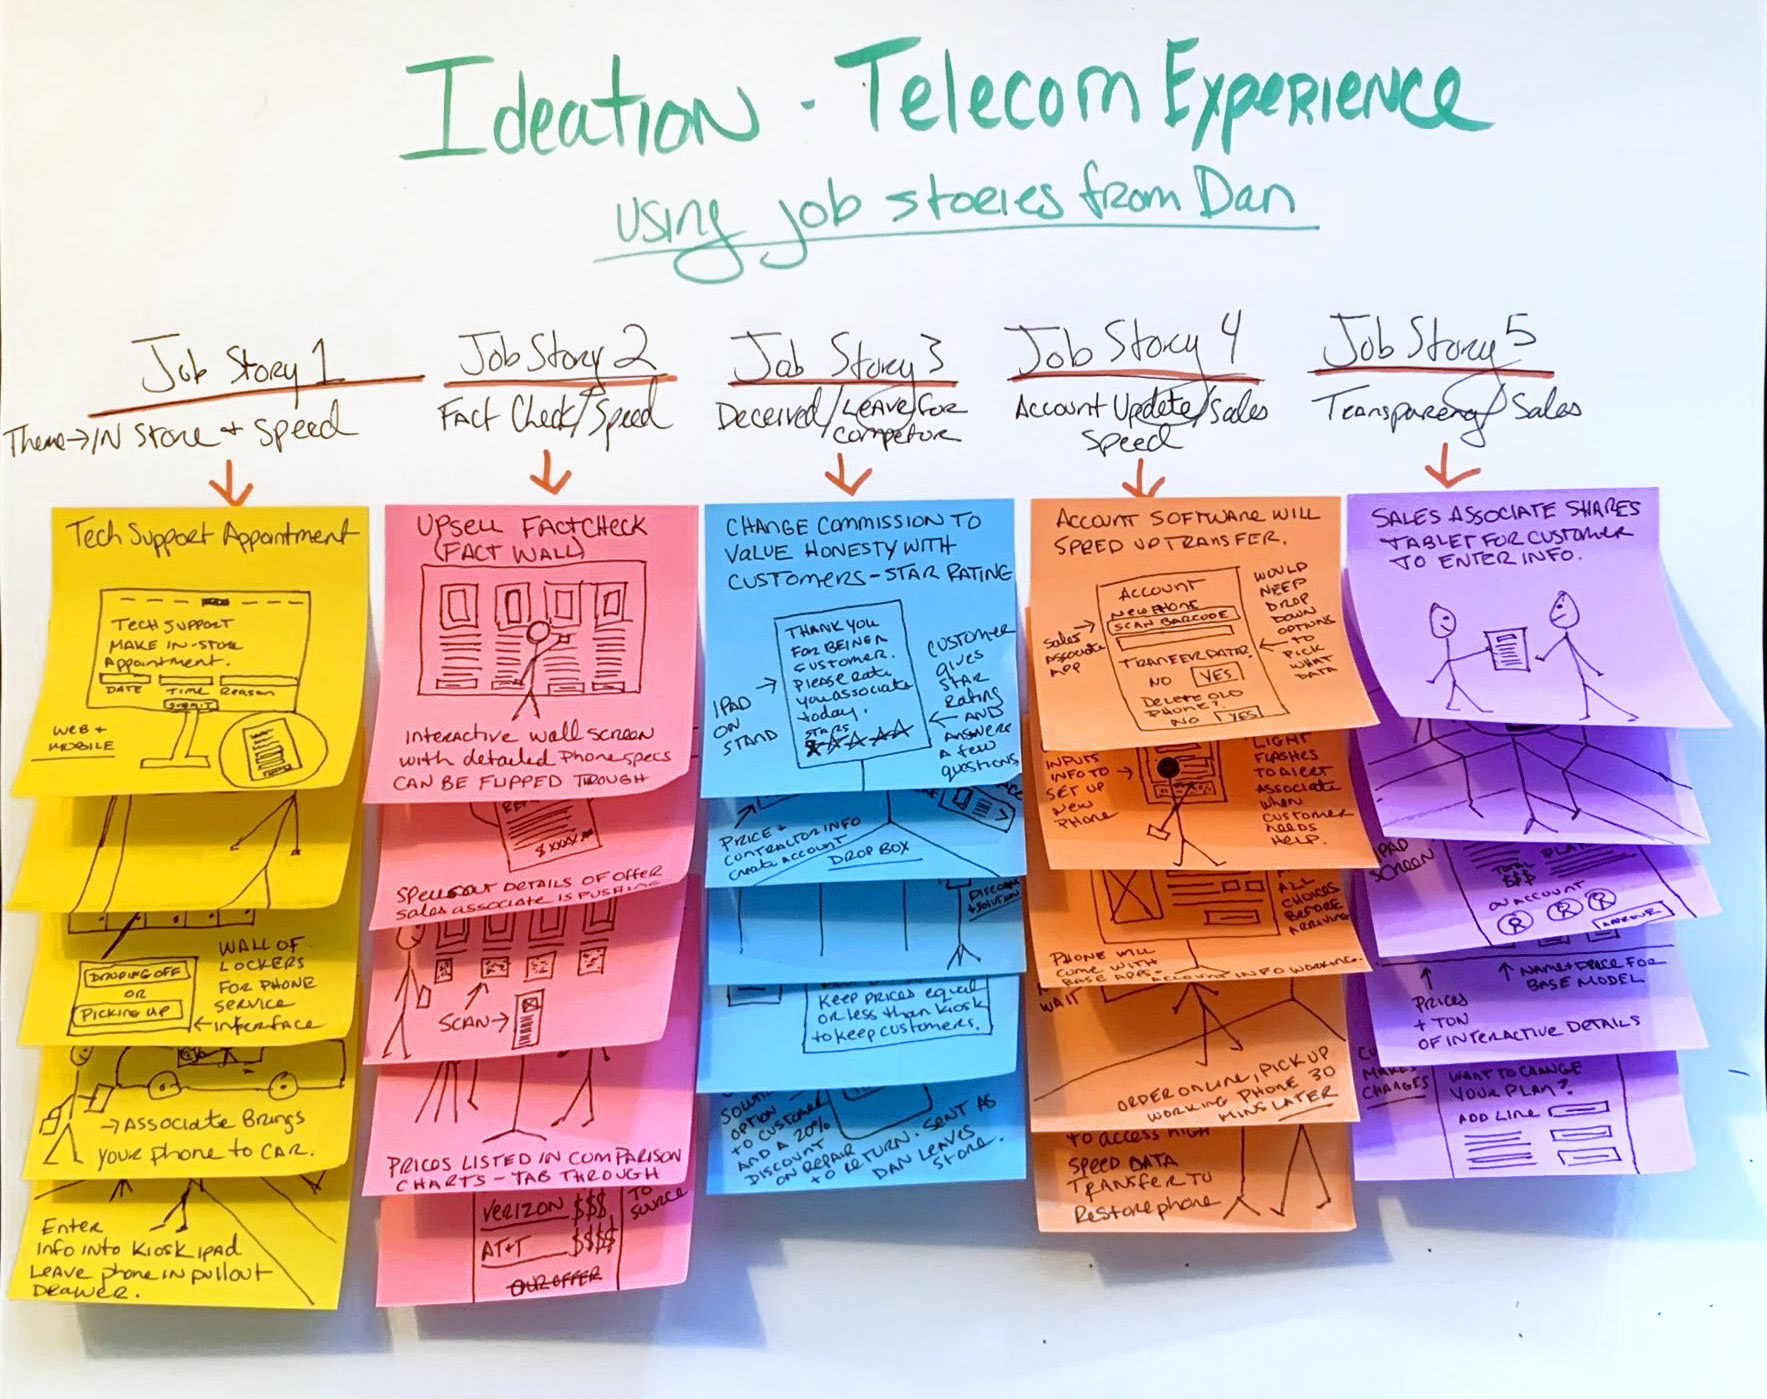 Ideation - Telecom Experience
using job stories from Dan
Job Story 1
Theme→ IN Store + Speed
Job Story 2
Fact Check/Speed
Job Story 3
Deceived/Leave for
competor
Job Story 4
Account Update/Sales
Speed
Job Story 5
Transparency/Sales
Tech Support Appointment
Tech Support
Make in-store
Appointment.
Date Time Reason
Submit
Web +
Mobile
Wall of
Lockers
for phone
service
←interface
Droping off
or
Picking up
→Associate Brings
your phone to car.
Enter
info into kiosk ipad
Leave phone in pullout
drawer.
Upsell Factcheck
(Fact Wall)
Interactive wall screen
with detailed phone specs
can be flipped through
$XXX.XX
details of offer
sales associate is pushing
Scan→
Prices listed in comparison
charts - tab through
Verizon $$$
AT+T $$$$
Our offer
to
source
Change commission to
value honesty with
customers - star rating
Thank you
for being a
customer.
Please rate
you associate
today.
stars
iPad
on
stand
Customer
gives
star
rating
and
answers
a few
questions
Price +
contractor info
create account
Drop box
+ solution
Keep prices equal
or less than kiosk
to keep customers.
option
to customer
and a 20%
discount
on repair
to return. Sent as
Dan leaves
store.
Account software will
speed up transfer.
Account
New phone
Scan barcode
Tranfer data?
No Yes
Delete old
phone?
No Yes
Sales
Associate
App
Would
need
drop
down
options
to
pick
what
data
Inputs
info to
set up
new
phone
Light
flashes
to alert
associate
when
customer
needs
help.
All
choices
before
arriving
Phone will
come with
base apps -
account info working.
wait
Order online, pick up
working phone 30
mins later
to access high
speed data
transfer to
restore phone
Sales associate shares
tablet for customer
to enter info.
iPad
screen
Total
$$$
on account
R R R
Prices
+ ton
of interactive details
Name + price for
base model
makes
changes
Want to change
your plan?
Add line